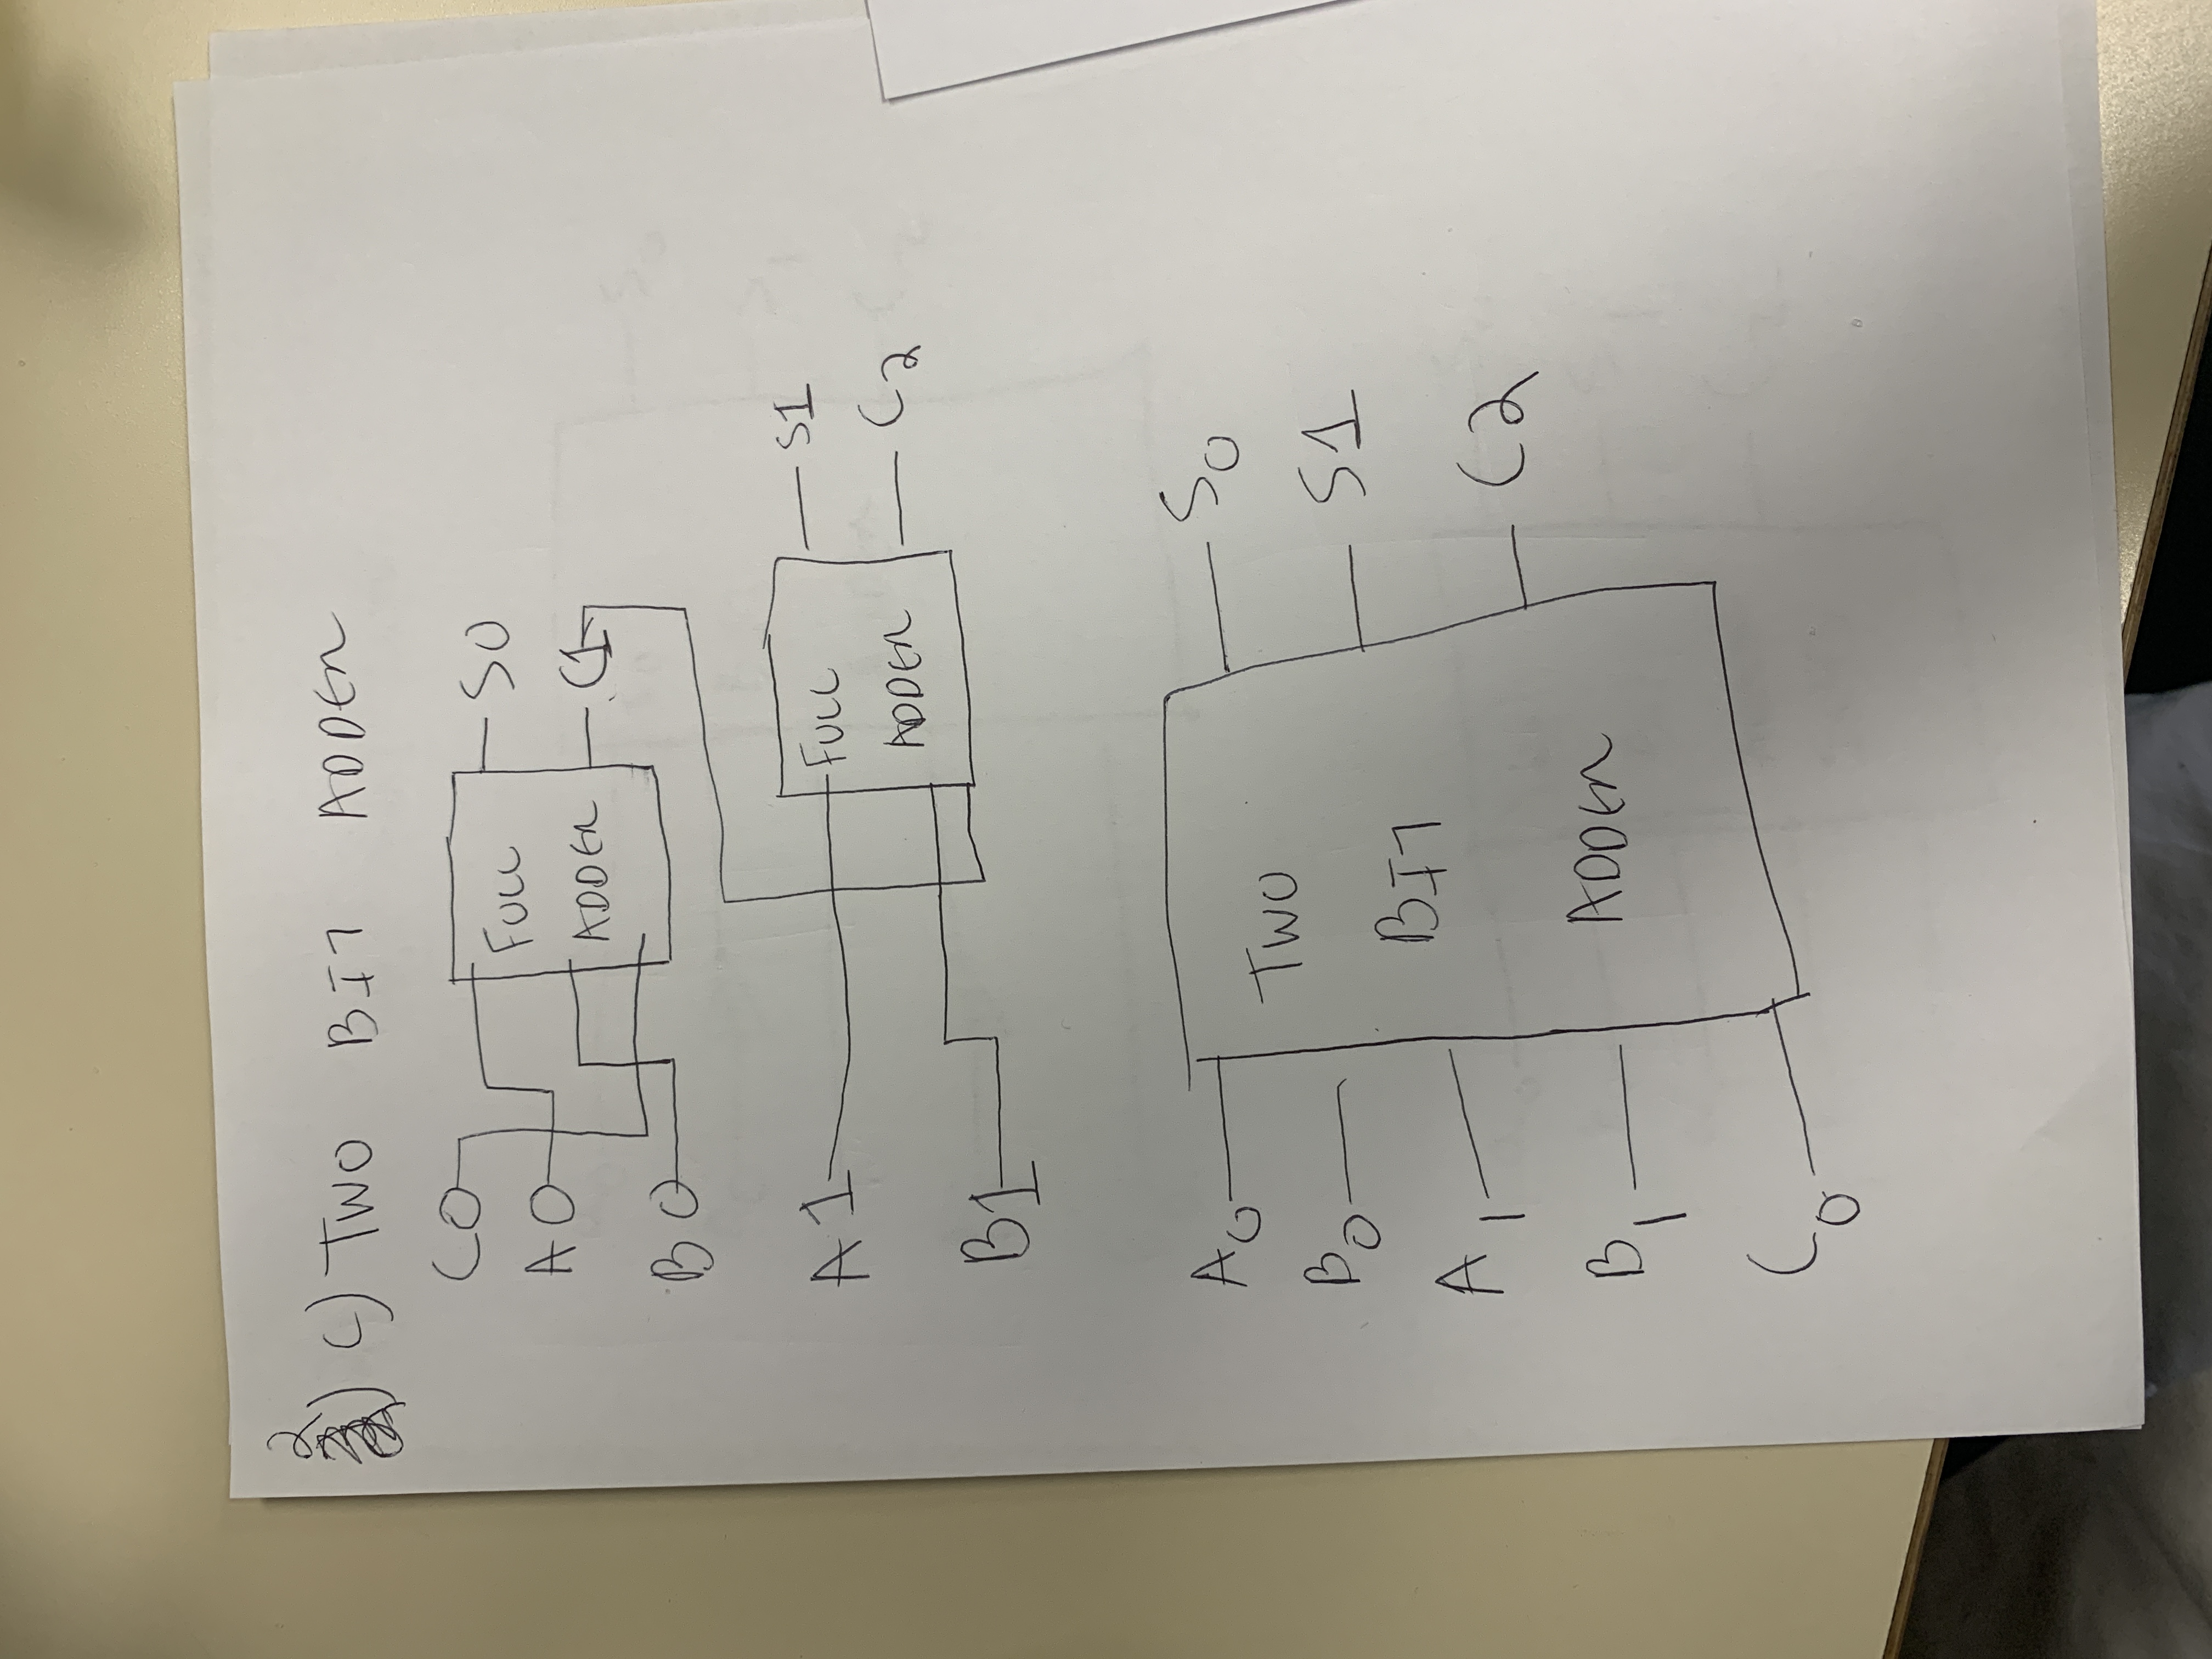 2) C) TWO BIT ADDER
C0
A0
B0
FULL
ADDER
S0
C1
A1
B1
FULL
ADDER
S1
C2
A0
B0
A1
B1
C0
TWO
BIT
ADDER
S0
S1
C2